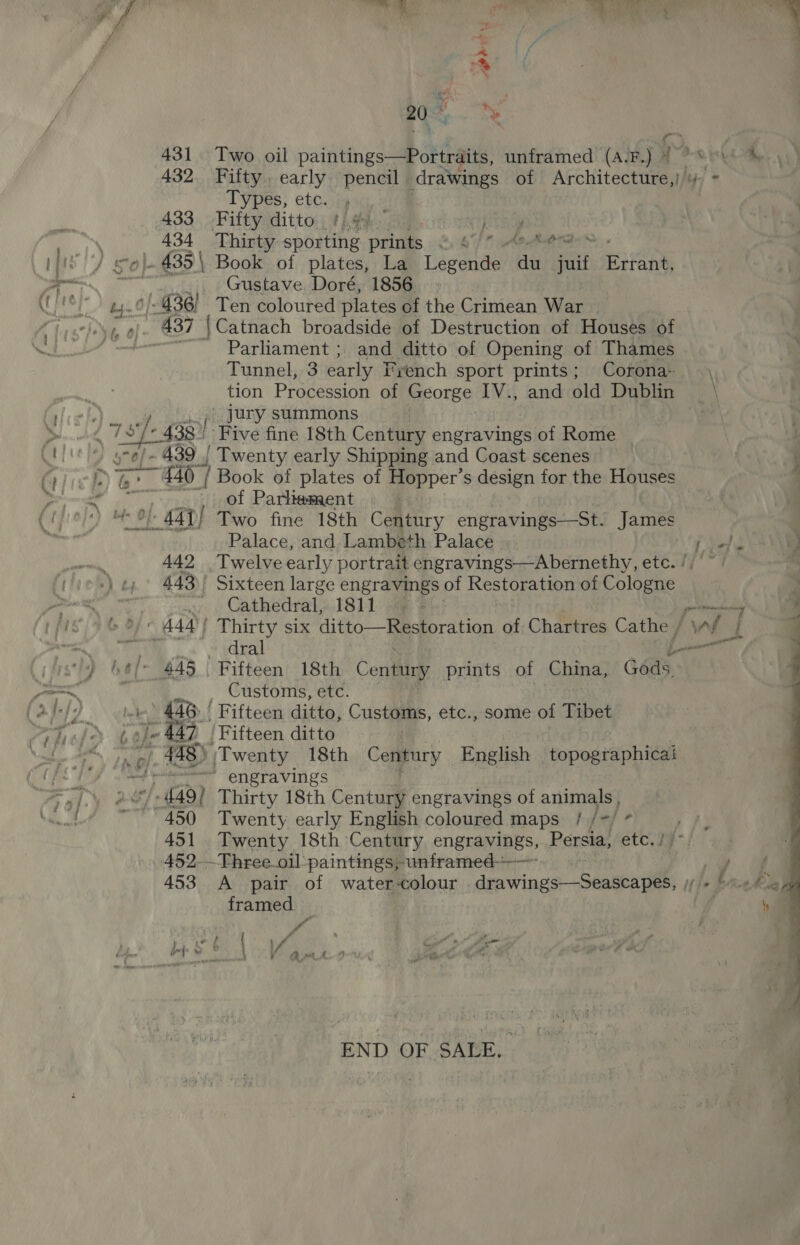 20
431 Two oil paintings—Portraits, unframed (A.F.)
432 Fifty early pencil drawings of Architecture,
Types, etc.
433 Fifty ditto
434 Thirty sporting prints
435 Book of plates, La Legende du juif Errant,
Gustave Doré, 1856
436 Ten coloured plates of the Crimean War
437 Catnach broadside of Destruction of Houses of
Parliament ; and ditto of Opening of Thames
Tunnel, 3 early French sport prints ; Corona-
tion Procession of George IV., and old Dublin
jury summons
438 Five fine 18th Century engravings of Rome
439 Twenty early Shipping and Coast scenes
440 Book of plates of Hopper's design for the Houses
of Parliament
441 Two fine 18th Century engravings—St. James
Palace, and Lambeth Palace
442 Twelve early portrait engravings—Abernethy, etc.
443 Sixteen large engravings of Restoration of Cologne
Cathedral, 1811
444 Thirty six ditto—Restoration of Chartres Cathe
dral
445 Fifteen 18th Century prints of China, Gods,
Customs, etc.
446 Fifteen ditto, Customs, etc., some of Tibet
447 Fifteen ditto
448 Twenty 18th Century English topographical
engravings
449 Thirty 18th Century engravings of animals
450 Twenty early English coloured maps
451 Twenty 18th Century engravings, Persia, etc.
452 Three oil paintings, unframed
453 A pair of water-colour drawings—Seascapes,
framed
END OF SALE.